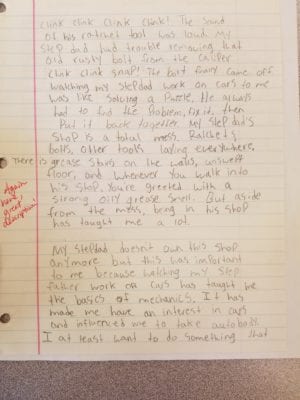 clink clink clink clink! The sound
of his ratchet tool was loud. My
step dad had trouble removing that
old rusty bolt from the caliper
clink clink snap! The bolt finally came off.
watching my stepdad work on cars to me
was like solving a Puzzle. He always
had to find the Problem, fix it, then
Put it back together. My step dad's
shop is a total mess. Ratchets,
bolts, other tools laying everywhere,
There is grease stains on the walls, unswept
floor, and whenever you walk into
his shop. You're greeted with a
strong oily grease smell. But aside
from the mess, being in his shop
has taught me a lot.
Again
great
description!
My stepdad doesn't own this shop
anymore but this was important
to me because watching my step
father work on cars has taught me
the basics of mechanics. It has
made me have an interest in cars
and influenced me to take autobody.
I at least want to do something that